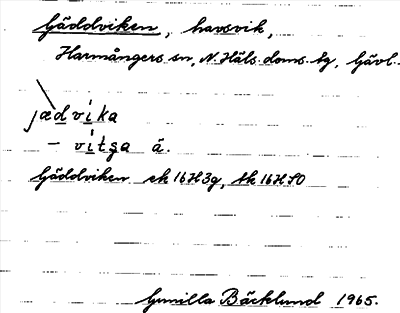 Gäddviken, havsvik,
Harmångers sn, N. Häls. doms. tg, Gävl.
jædvika
– vitga ä.
Gäddviken ek 16H3g, tk 16H SO
Gunilla Bäcklund 1965.